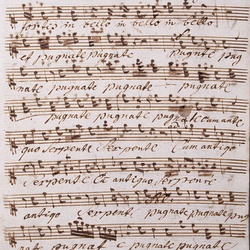 fortes in bello in bello in bello
et pugnate pugnate pugnate pug
nate pugnate pugnate pugnate
pugnate pugnate pugnate cum ante
quo serpente Serpente Cum antiquo
Serpente Et antiquo, serpente
antiqo Serpente, pugnate pugnate pug
nate, et pugnate pugnate pugnate